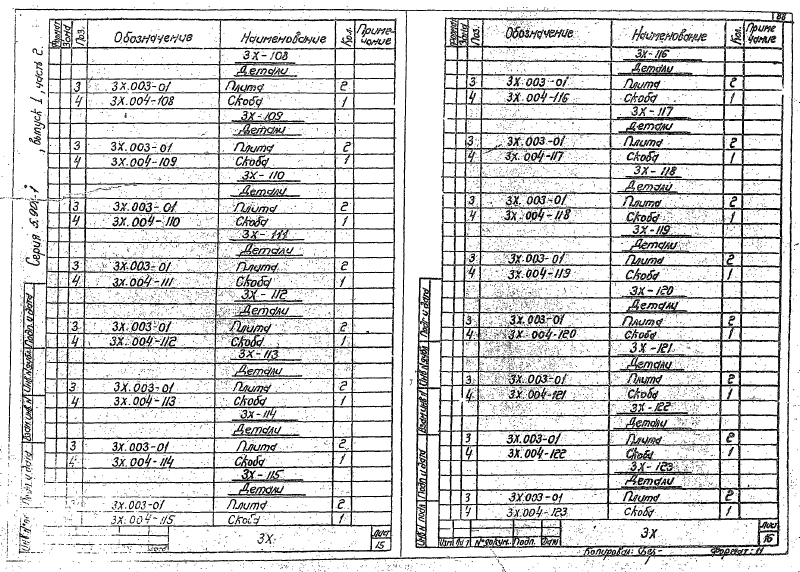 Серия 5.900-7, выпуск 1, часть 2.
Формат Зона Поз. Обозначение Наименование Кол. Примечание
3Х-108
Детали
3 3Х.003-01 Плита 2
4 3Х.004-108 Скоба 1
3Х-109
Детали
3 3Х.003-01 Плита 2
4 3Х.004-109 Скоба 1
3Х-110
Детали
3 3Х.003-01 Плита 2
4 3Х.004-110 Скоба 1
3Х-111
Детали
3 3Х.003-01 Плита 2
4 3Х.004-111 Скоба 1
3Х-112
Детали
3 3Х.003-01 Плита 2
4 3Х.004-112 Скоба 1
3Х-113
Детали
3 3Х.003-01 Плита 2
4 3Х.004-113 Скоба 1
3Х-114
Детали
3 3Х.003-01 Плита 2
4 3Х.004-114 Скоба 1
3Х-115
Детали
3Х.003-01 Плита 2
3Х.004-115 Скоба 1
3Х
Лист
15
Взам.инв.№ Инв.№дубл. Подп. и дата
88
Формат Зона Поз. Обозначение Наименование Кол. Примечание
3Х-116
Детали
3 3Х.003-01 Плита 2
4 3Х.004-116 Скоба 1
3Х-117
Детали
3 3Х.003-01 Плита 2
4 3Х.004-117 Скоба 1
3Х-118
Детали
3 3Х.003-01 Плита 2
4 3Х.004-118 Скоба 1
3Х-119
Детали
3 3Х.003-01 Плита 2
4 3Х.004-119 Скоба 1
3Х-120
Детали
3 3Х.003-01 Плита 2
4 3Х.004-120 Скоба 1
3Х-121
Детали
3 3Х.003-01 Плита 2
4 3Х.004-121 Скоба 1
3Х-122
Детали
3 3Х.003-01 Плита 2
4 3Х.004-122 Скоба 1
3Х-123
Детали
3 3Х.003-01 Плита 2
4 3Х.004-123 Скоба 1
Инв.№ подл. Подп. и дата Взам.инв.№ Инв.№дубл. Подп. и дата
Изм. Лист №докум. Подп. Дата
3Х
Лист
16
Копировал: Формат: 11